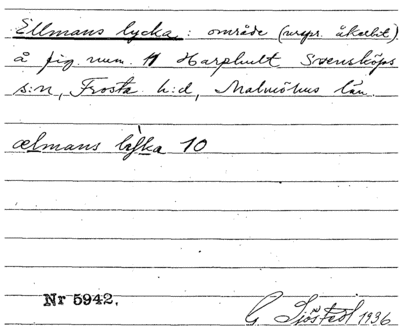 Ellmans lycka: område (urspr. åkerbit)
å fig. num. 11 Harphult Svensköps
s:n, Frosta h:d, Malmöhus län.
ælmans 10
Nr 5942.
G Sjöstedt 1936